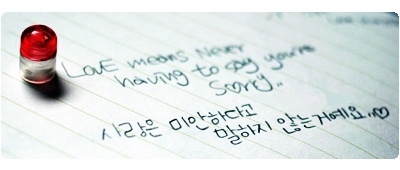 LovE means Never
having to say you're
Sorry..
사랑은 미안하다고
말하지 않는거예요..♡